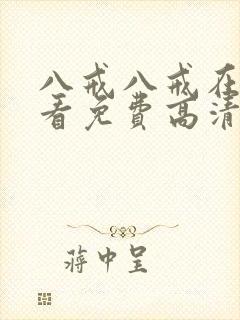 八戒八戒在
看免费高清
蒋中呈